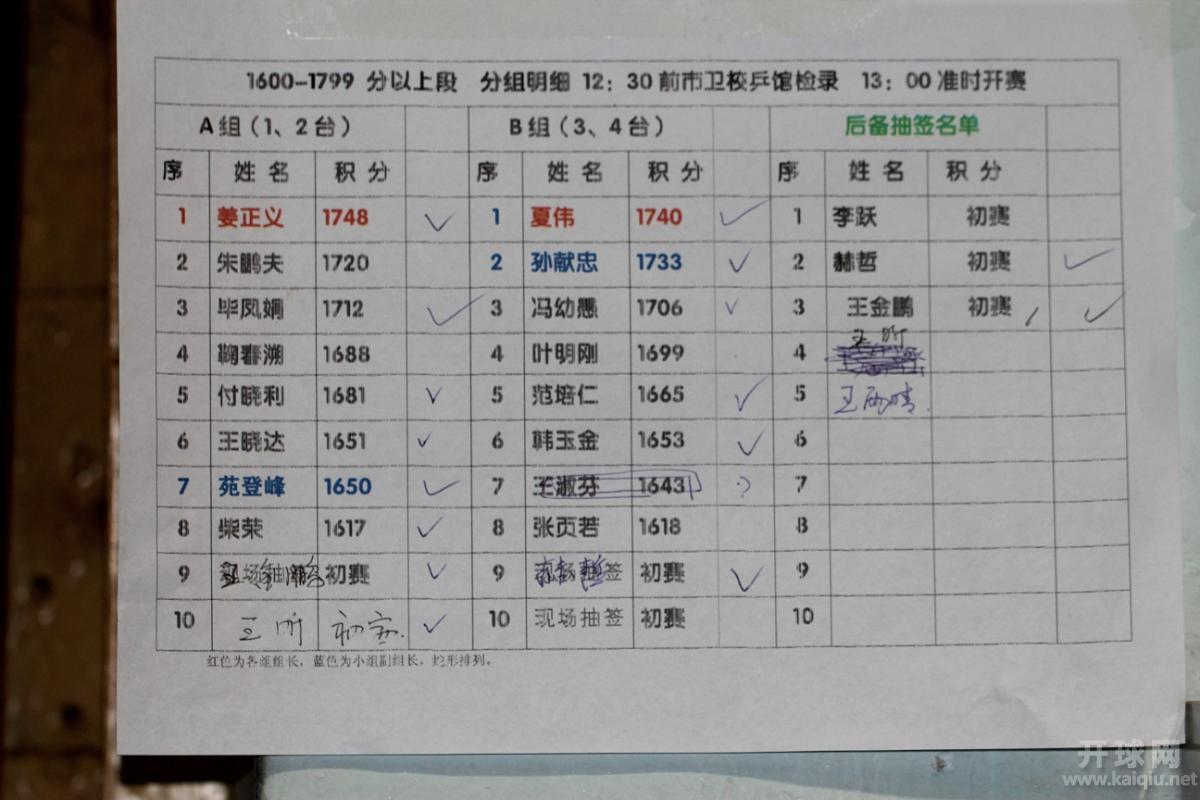 1600-1799 分以上段 分组明细 12：30前市卫校乒馆检录 13：00准时开赛
A组（1、2台） B组（3、4台） 后备抽签名单
序 姓名 积分 序 姓名 积分 序 姓名 积分
1 姜正义 1748 1 夏伟 1740 1 李跃 初赛
2 朱鹏夫 1720 2 孙献忠 1733 2 赫哲 初赛
3 毕凤娴 1712 3 冯幼愚 1706 3 王金鹏 初赛
4 鞠春溯 1688 4 叶明刚 1699 4 王昕
5 付晓利 1681 5 范培仁 1665 5
6 王晓达 1651 6 韩玉金 1653 6
7 苑登峰 1650 7 王淑芬 1643 7
8 柴荣 1617 8 张页若 1618 8
9 现场抽签 初赛 9 现场抽签 初赛 9
10 王昕 初赛 10 现场抽签 初赛 10
红色为各组组长，蓝色为小组副组长，蛇形排列。
开球网
www.kaiqiu.net